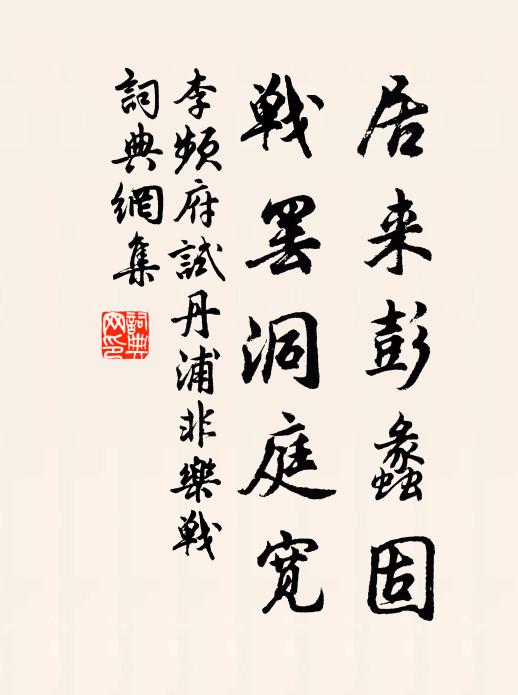 居来彭蠡固
戦罢洞庭宽
李频府試丹浦非樂戦
詞典網集
詞典网印